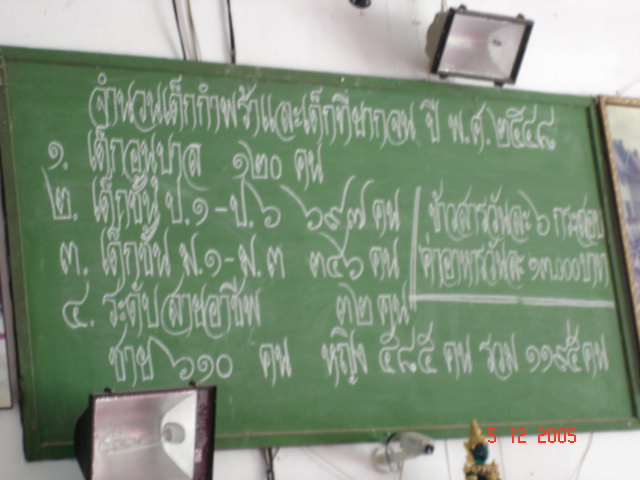 จำนวนเด็กกำพร้าและเด็กที่ยากจน ปี พ.ศ. ๒๕๔๘
๑. เด็กอนุบาล ๑๒๐ คน
๒. เด็กชั้น ป.๑ - ป.๖ ๖๙๗ คน
๓. เด็กชั้น ม.๑ - ม.๓ ๓๔๖ คน
๔. ระดับสายอาชีพ ๓๒ คน
ข้าวสารวันละ ๖ กระสอบ
ค่าอาหารวันละ ๑๓.๐๐๐ บาท
ชาย ๖๑๐ คน หญิง ๕๘๕ คน รวม ๑๑๙๕ คน
5 12 2005